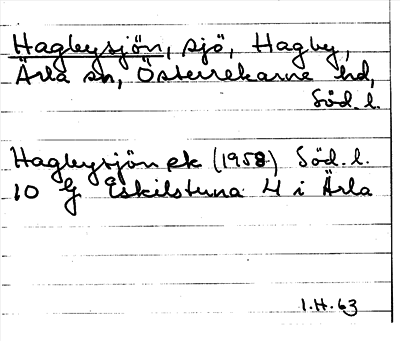 Hagbysjön, sjö, Hagby,
Ärla sn, Österrekarne hd,
Söd. l.
Hagbysjön ek (1958) Söd. l.
10 G Eskilstuna 4 i Ärla
1.H.63